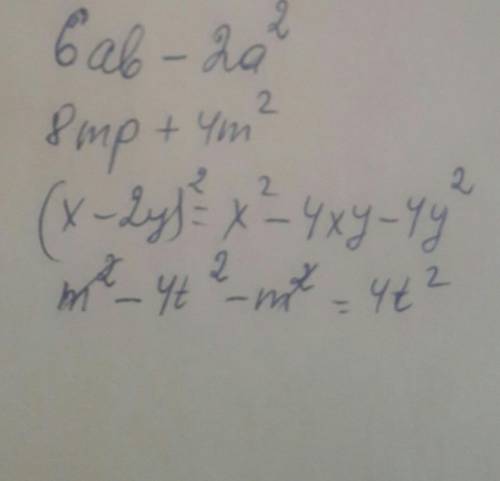 6ab - 2a²
8mp + 4m²
(x - 2y)² = x² - 4xy - 4y²
m² - 4t² - m² = 4t²